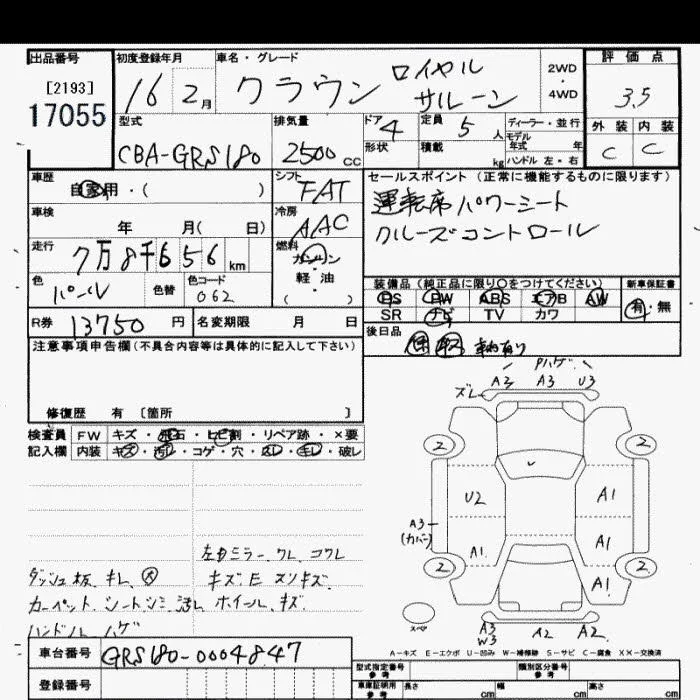 出品番号 初度登録年月 車名・グレード 評価点
[2193] 16 2月 クラウン ロイヤル サルーン 2WD・4WD 3.5
17055
型式 排気量 ドア 4 定員 5人 ディーラー・並行 外装 内装
CBA-GRS180 2500cc 形状 積載 kg モデル年式 年 ハンドル 左・右 C C
車歴 自家用・( ) シフト FAT セールスポイント (正常に機能するものに限ります)
車検 年 月( 日) 冷房 AAC 運転席パワーシート
走行 7万8千656km 燃料 ガソリン・軽油 ( ) クルーズコントロール
色 パール 色替 色コード 062 装備品 (純正品に限り○をつけてください) 新車保証書
PS PW ABS エアB AW 有・無
R券 13750円 名変期限 月 日 SR ナビ TV カワ
後日品
注意事項申告欄(不具合内容等は具体的に記入して下さい) 保 取 車内有り
Pハゲ
ズレ A3 A3 U3
修復歴 有 [箇所 ]
検査員 FW キズ・飛石・ヒビ割・リペア跡・×要
記入欄 内装 キズ・汚レ・コゲ・穴・・キレ・破レ
2 2
U2 A1
A3 (カバー)
A1 A1
2 A1 2
左右ミラー、ワレ、コワレ
ダッシュ板、キレ、大 キズ E スリキズ
カーペット、シートシミ、汚レ ホイール、キズ
ハンドル ハゲ
スペア A3 W3 A2 A2
A-キズ E-エクボ U-凹み W-補修跡 S-サビ C-腐食 XX-交換済
車台番号 GRS180-0004847 型式指定番号 参考 類別区分番号 参考
登録番号 車庫証明用 参考 長さ cm 幅 cm 高さ cm